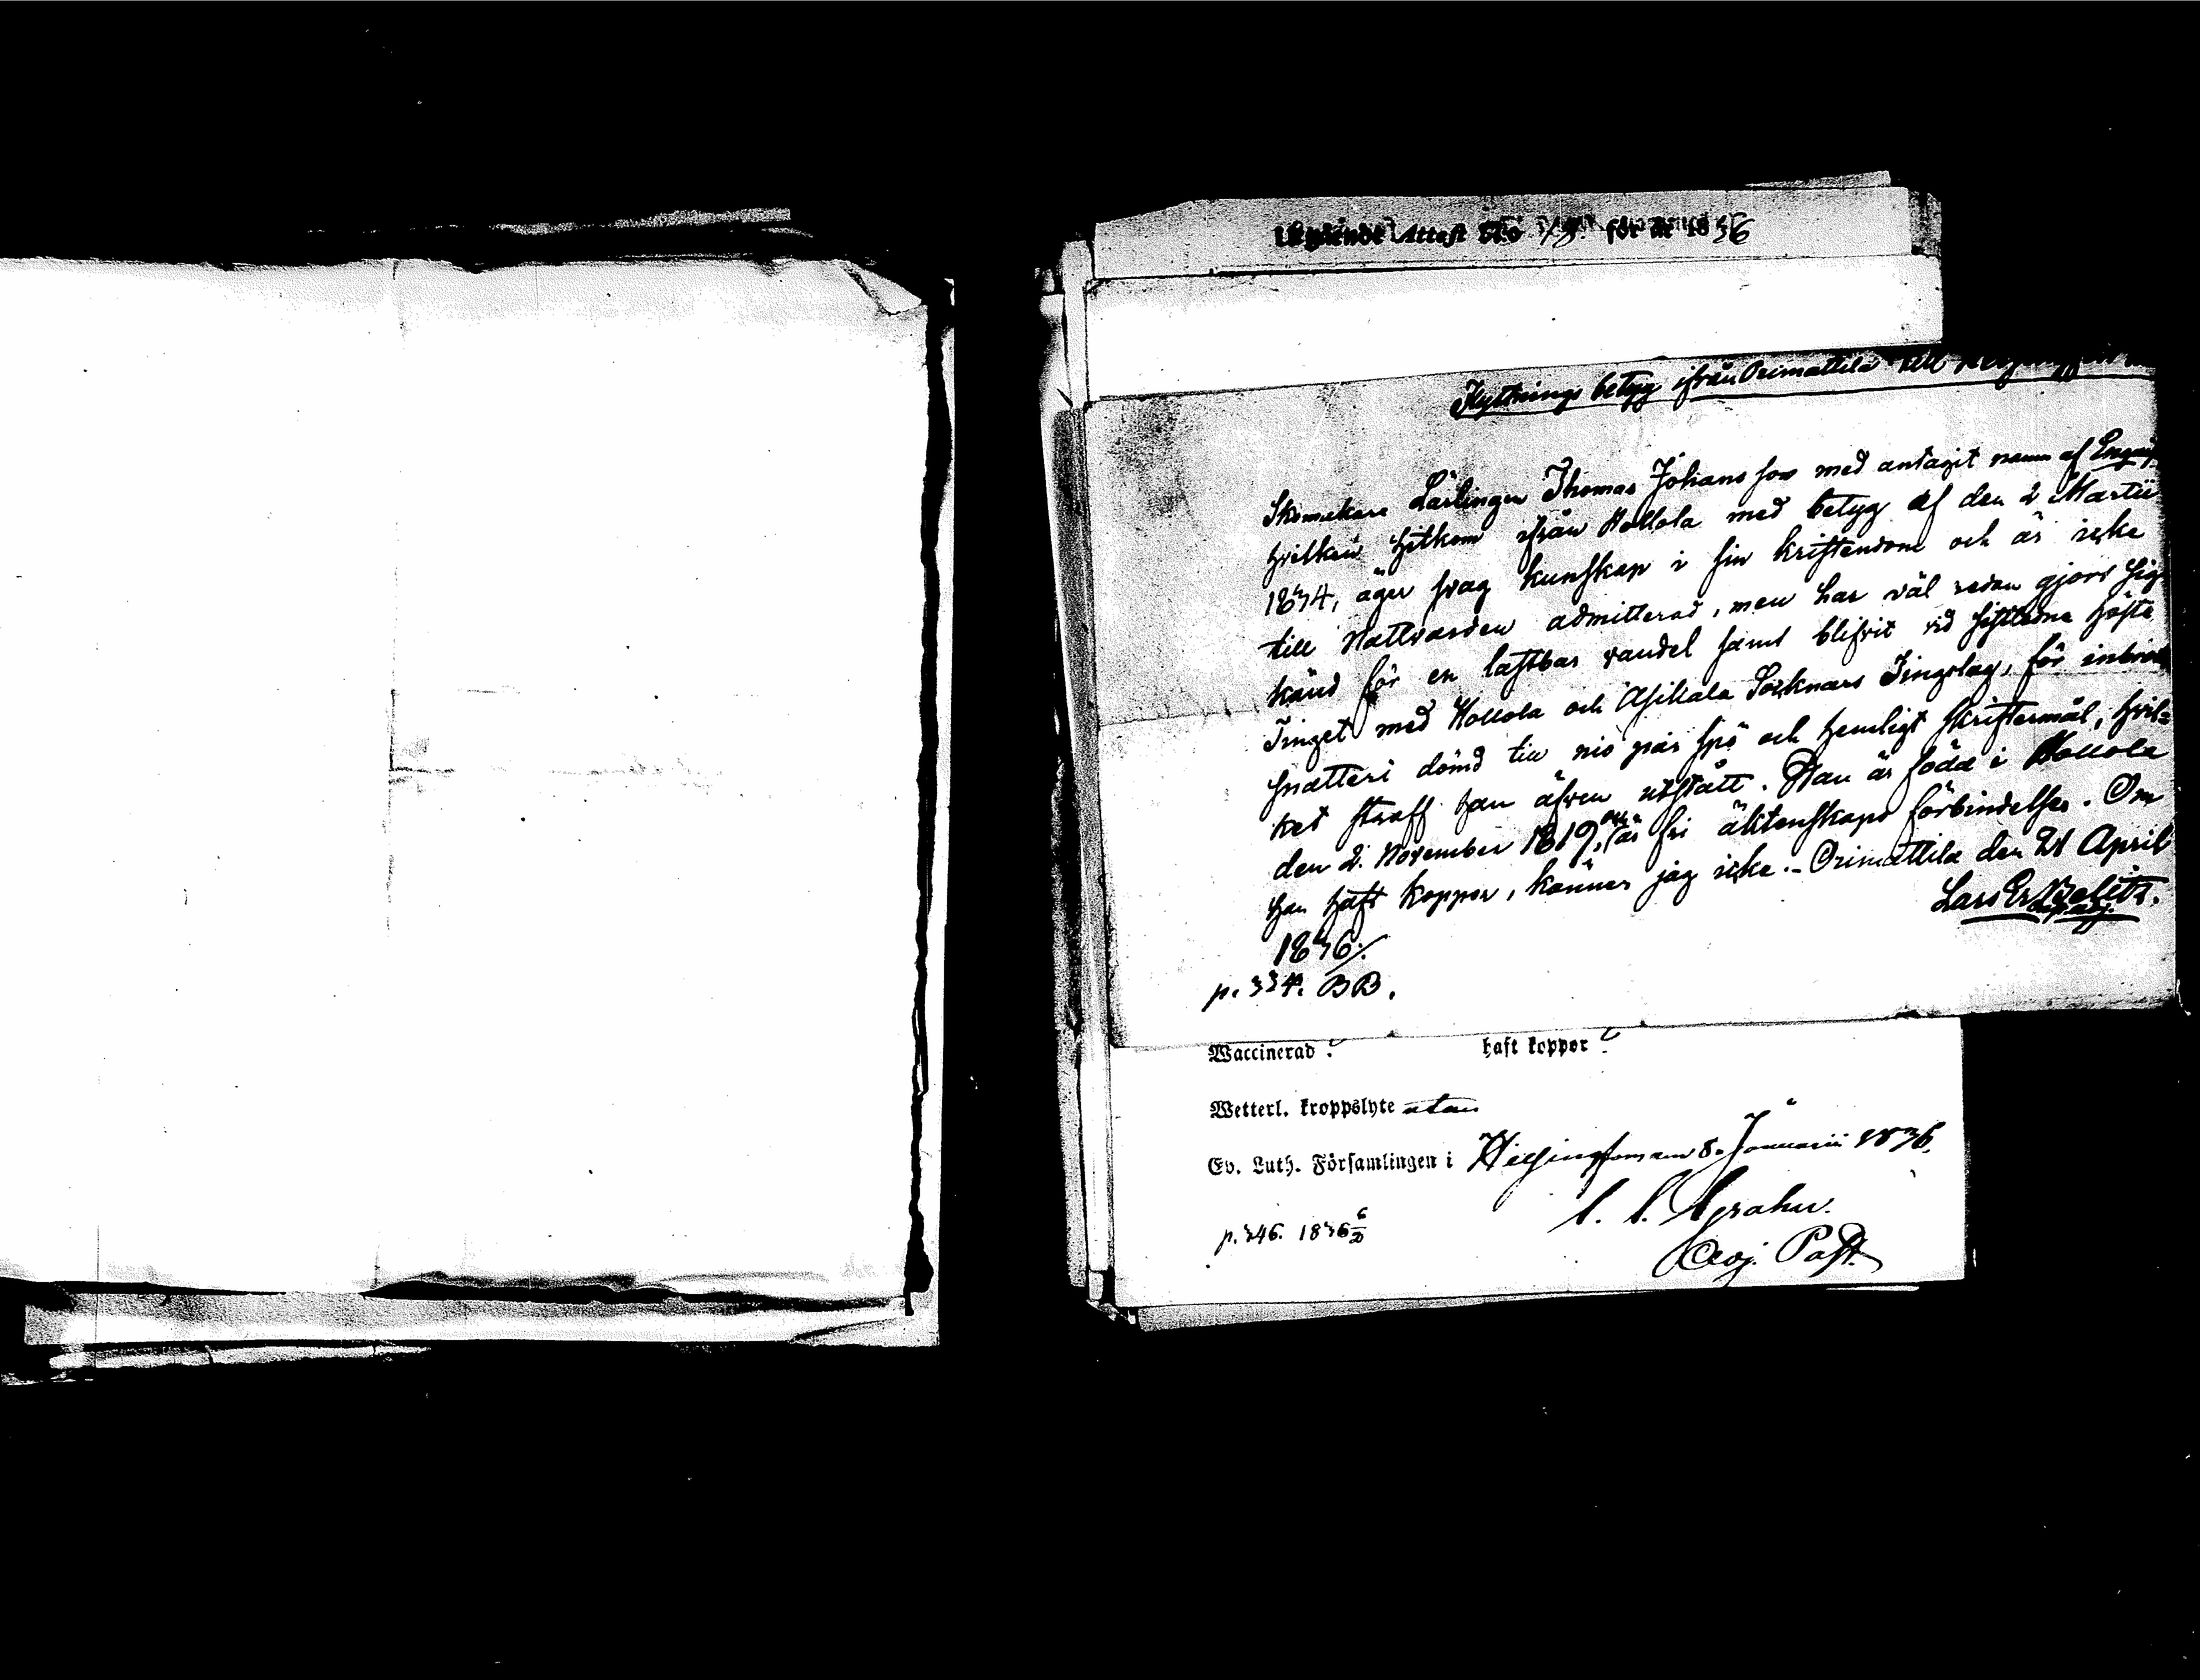 Attest N:o för år 1836
Flyttnings betyg ifrån Orimattila till
Skomakare Lärlingen Thomas Johansson med antagit namn af
hvilken hitkom ifrån Hollola med betyg af den 2 Martii
1834, äger svag kunskap i sin kristendom och är icke
till Nattvarden admitterad, men har väl redan gjort sig
känd för en lastbar vandel samt blifvit vid sistledne höste
Tinget med Hollola och Asikkala Socknars Tingslag, för inbrott
snatteri dömd till nio par spö och hemligt skriftermål, hvil=
ket straff han äfven utstått. Han är född i Hollola
den 2. November 1819, och är fri äktenskaps förbindelser. Om
han haft koppor, känner jag icke. – Orimattila den 21 April
1836.
Lars Er
p. 334. BB.
Waccinerad ? haft koppor ?
Wetterl. kroppslyte utan
Ev. Luth. Församlingen i Helsingfors den 8. Januarii 1836.
p. 346. 1836
Grahn.
Adj. Past.